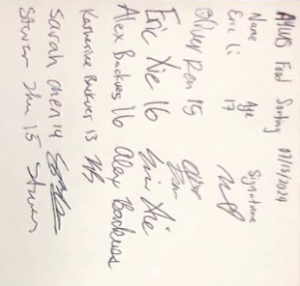 AYLUS Food Sorting 07/18/2024
Name Age Signature
Eric Li 17
Oliver Ren 15
Eric Xie 16 Eric Xie
Alex Backues 16 Alex Backues
Katherine Backues 13
Sarah Chen 14
Steven Zhu 15 Steven